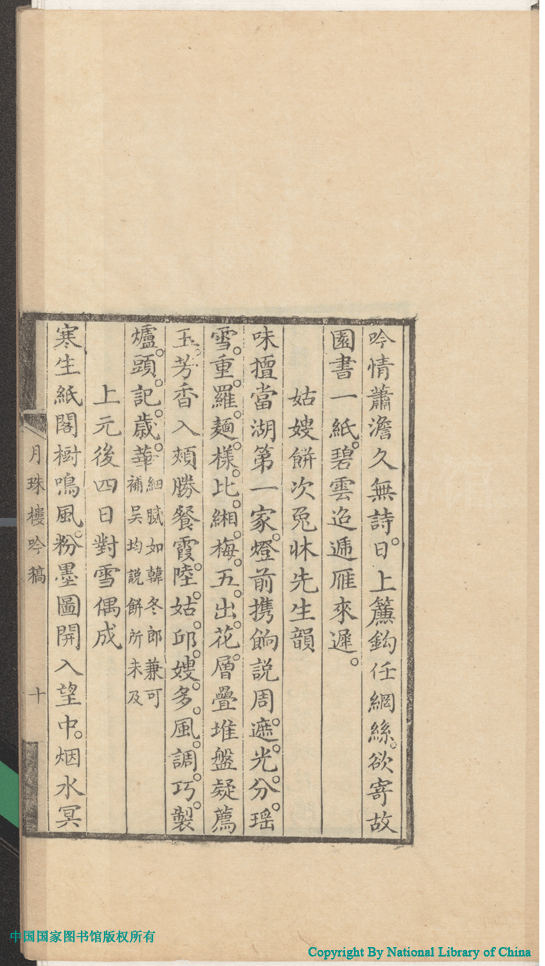 吟情蕭澹久無詩。日上簾鈎任網絲。欲寄故
園書一紙。碧雲迢遞雁來遲。
姑嫂餅次兔牀先生韻
味擅當湖第一家。燈前携餉説周遮。光分瑶
雪。重羅麵樣。比緗梅五出花。層疊堆盤疑薦
玉。芳香入頰勝餐霞。陸姑邱嫂多風調。巧製
爐頭記歲華。細膩如韓冬郎兼可
補吴均説餅所未及
上元後四日對雪偶成
寒生紙閣樹鳴風。粉墨圖開入望中。烟水冥
月珠樓吟稿
十
中国国家图书馆版权所有
Copyright By National Library of China